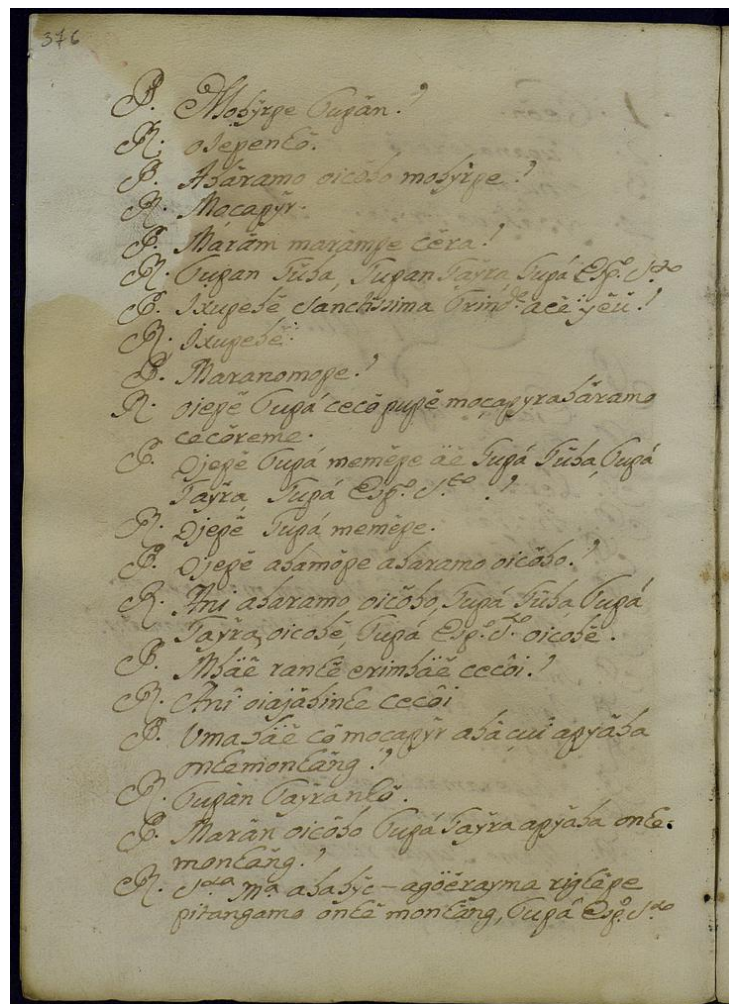 376
P. Mobÿrpe Tupãn?
R. oJepentõ.
P. Abãramo oicõbo mobÿrpe?
R. Moçapÿr.
P. Mãrãm marãmpe cẽra?
R. Tupan Tũba, Tupan Taÿra, Tupá Esp.º S.to
P. Ixupebẽ sanctissima Trind.de acẽ ÿẽũ?
R. Ixupebẽ.
P. Maranomope?
R. oiepẽ Tupá cecõ pupẽ moçapyrabãramo
cecõreme.
P. Ojepẽ Tupá memẽpe äẽ Tupá Tũba, Tupá
Taÿra, Tupá Esp.º S.to?
R. Ojepẽ Tupá memẽpe.
P. Ojepẽ abamõpe abaramo oicõbo?
R. Ani abaramo, oicõbo, Tupá Tũba Tupá
Taÿra, oicobẽ, Tupá Esp.º S.to oicobẽ.
P. Mbäẽ rantẽ erimbäẽ cecôi?
R. Anî oiajãbinte cecôi
P. Umabäẽ cõ moçapÿr abã çui apyãba
onte montãng?
R. Tupãn Taÿrantõ.
P. Marãn oicõbo Tupá Taÿra apyãba onte-
montãng?
R. S.ta M.a abahÿc-agöẽrayma rigtẽpe
pitangamo õntẽ montãng, Tupâ Esp.º S.to